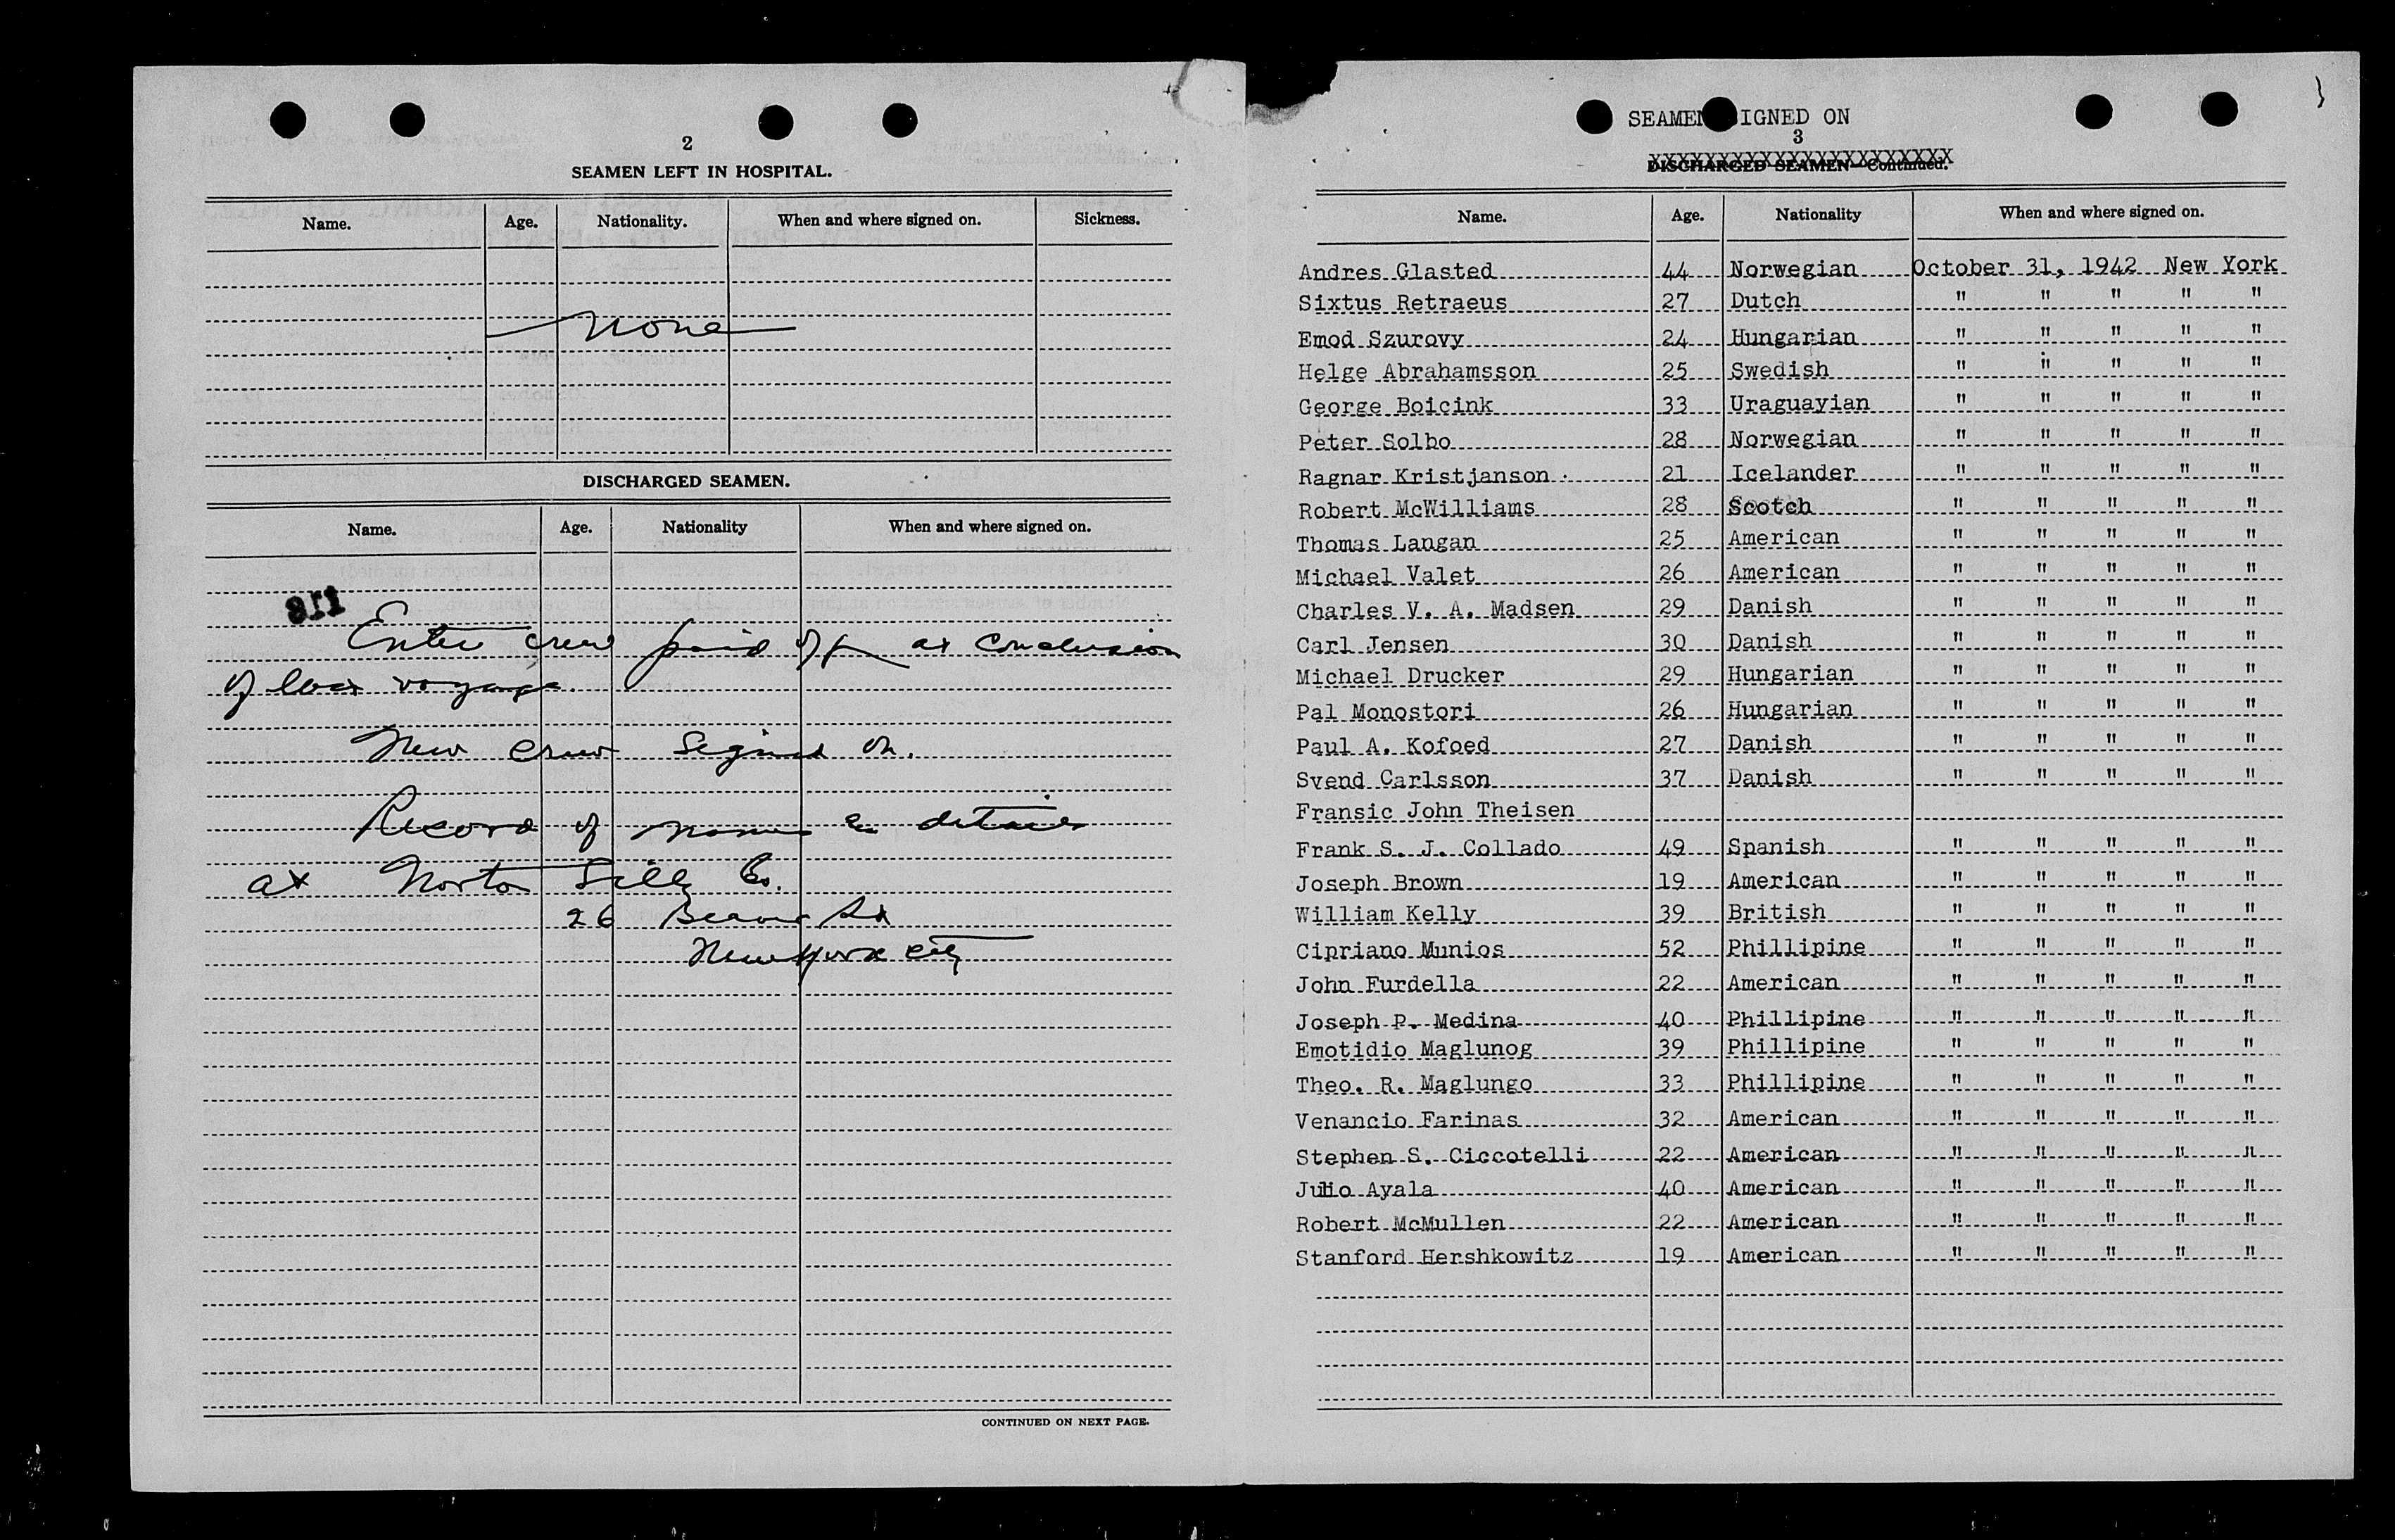 2
SEAMEN LEFT IN HOSPITAL.
Name. Age. Nationality. When and where signed on. Sickness.
None
DISCHARGED SEAMEN.
Name. Age. Nationality When and where signed on.
911
Entire crew paid off at conclusion
of last voyage.
New crew signed on.
Record of names & details
at Norton Lilly Co.
26 Beaver St
New York City
CONTINUED ON NEXT PAGE.
SEAMEN SIGNED ON
3
DISCHARGED SEAMEN—Continued.
Name. Age. Nationality When and where signed on.
Andres Glasted 44 Norwegian October 31, 1942 New York
Sixtus Retraeus 27 Dutch " " " " "
Emod Szurovy 24 Hungarian " " " " "
Helge Abrahamsson 25 Swedish " " " " "
George Boicink 33 Uraguayian " " " " "
Peter Solbo 28 Norwegian " " " " "
Ragnar Kristjanson 21 Icelander " " " " "
Robert McWilliams 28 Scotch " " " " "
Thomas Langan 25 American " " " " "
Michael Valet 26 American " " " " "
Charles V. A. Madsen 29 Danish " " " " "
Carl Jensen 30 Danish " " " " "
Michael Drucker 29 Hungarian " " " " "
Pal Monostori 26 Hungarian " " " " "
Paul A. Kofoed 27 Danish " " " " "
Svend Carlsson 37 Danish " " " " "
Fransic John Theisen
Frank S. J. Collado 49 Spanish " " " " "
Joseph Brown 19 American " " " " "
William Kelly 39 British " " " " "
Cipriano Munios 52 Phillipine " " " " "
John Furdella 22 American " " " " "
Joseph P. Medina 40 Phillipine " " " " "
Emotidio Maglunog 39 Phillipine " " " " "
Theo. R. Maglungo 33 Phillipine " " " " "
Venancio Farinas 32 American " " " " "
Stephen S. Ciccotelli 22 American " " " " "
Julio Ayala 40 American " " " " "
Robert McMullen 22 American " " " " "
Stanford Hershkowitz 19 American " " " " "